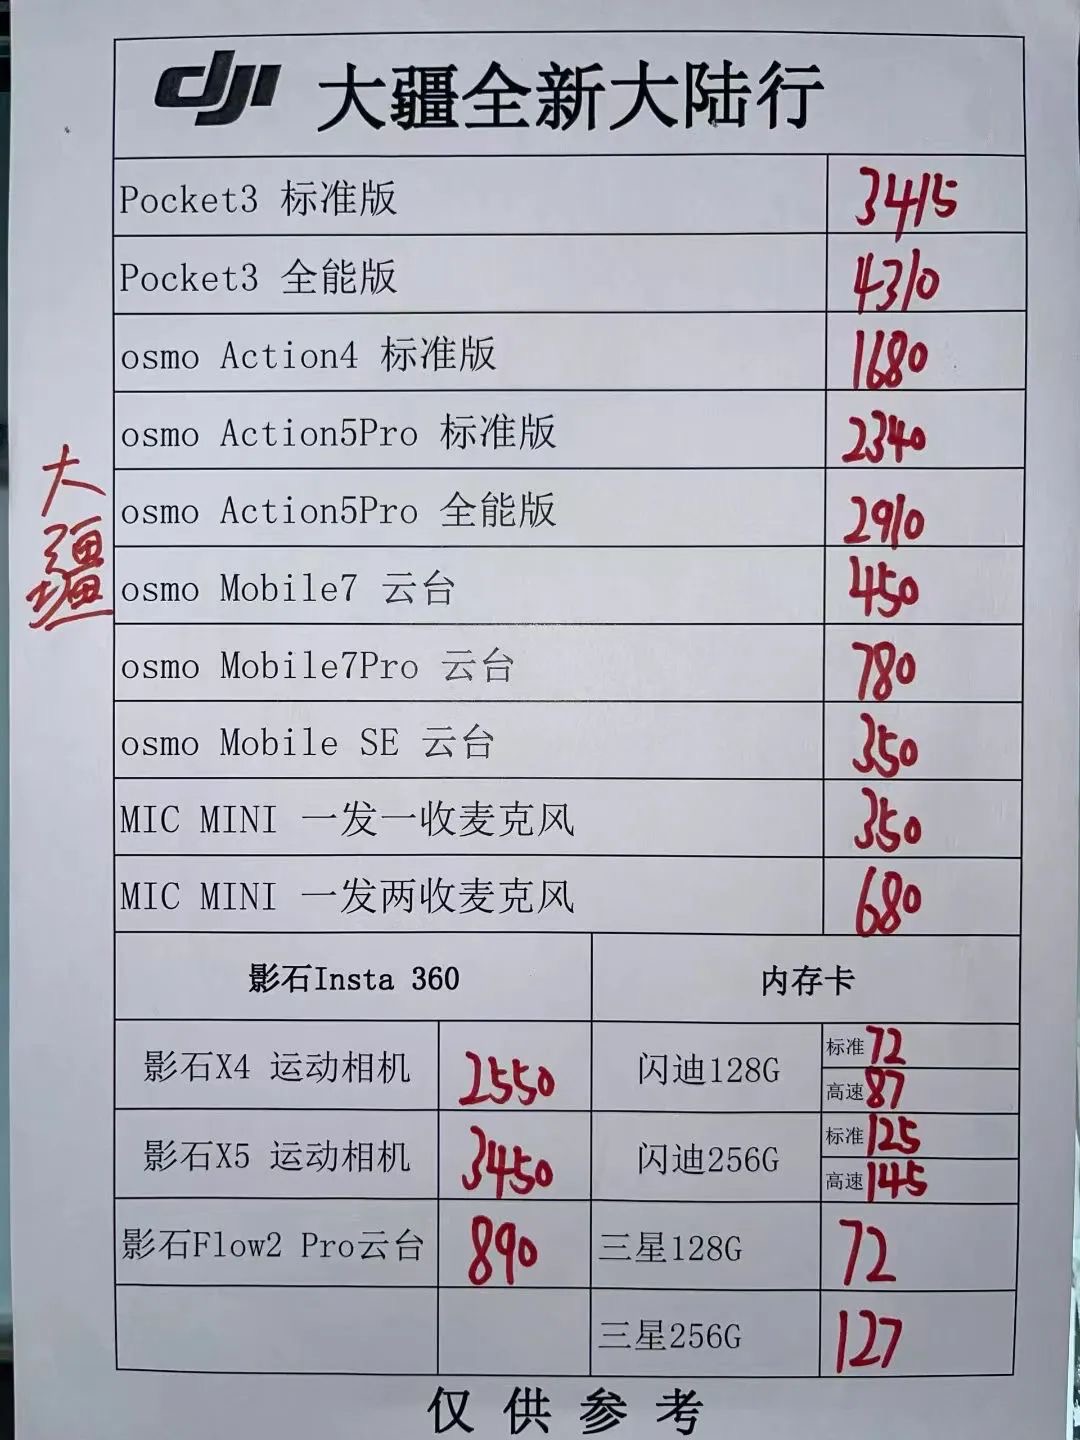 dji 大疆全新大陆行
Pocket3 标准版 3415
Pocket3 全能版 4310
osmo Action4 标准版 1680
osmo Action5Pro 标准版 2340
osmo Action5Pro 全能版 2910
大疆
osmo Mobile7 云台 450
osmo Mobile7Pro 云台 780
osmo Mobile SE 云台 350
MIC MINI 一发一收麦克风 350
MIC MINI 一发两收麦克风 680
影石Insta 360 内存卡
影石X4 运动相机 2550 闪迪128G 标准 72
高速 87
影石X5 运动相机 3450 闪迪256G 标准 125
高速 145
影石Flow2 Pro云台 890 三星128G 72
三星256G 127
仅供参考